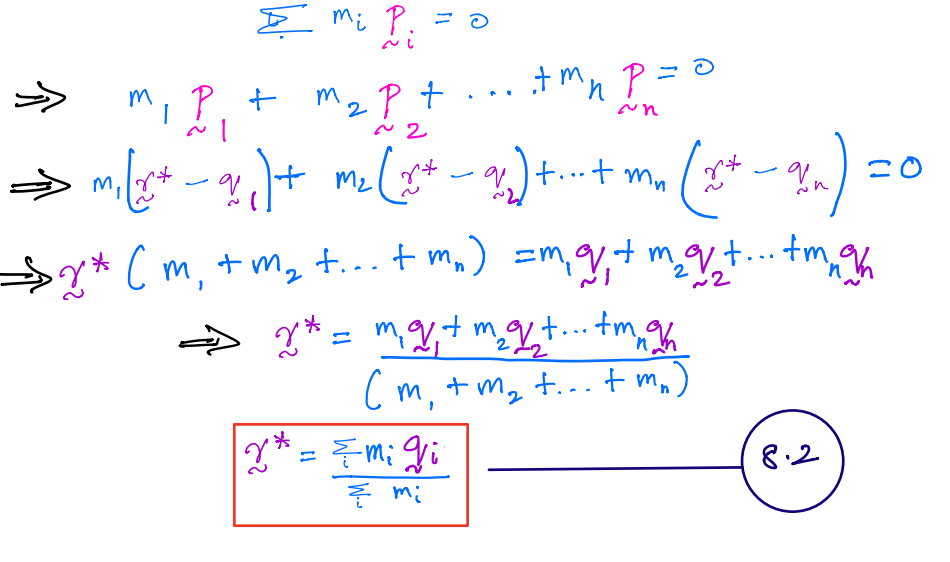 ∑ᵢ mᵢ p̰ᵢ = 0
⇒ m₁ p̰₁ + m₂ p̰₂ + .... + mₙ p̰ₙ = 0
⇒ m₁(r̰* − q̰₁) + m₂(r̰* − q̰₂) + ... + mₙ(r̰* − q̰ₙ) = 0
⇒ r̰* (m₁ + m₂ + ... + mₙ) = m₁q̰₁ + m₂q̰₂ + ... + mₙq̰ₙ
⇒ r̰* = (m₁q̰₁ + m₂q̰₂ + ... + mₙq̰ₙ) / (m₁ + m₂ + ... + mₙ)
r̰* = ∑ᵢ mᵢ q̰ᵢ / ∑ᵢ mᵢ 8.2